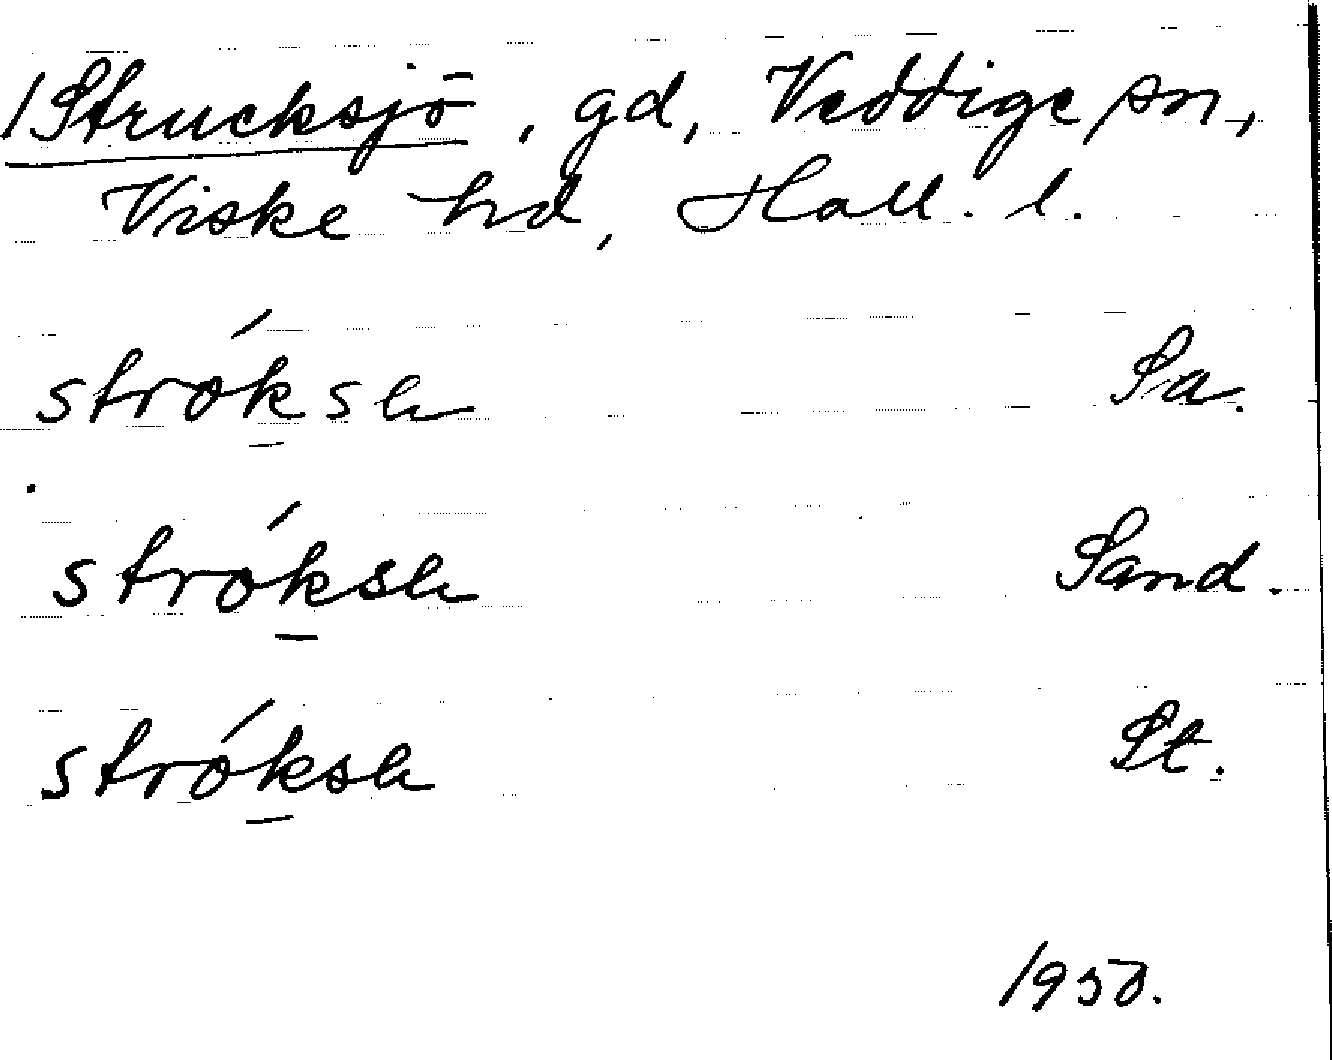 /Strucksjö, gd, Veddige sn,
Viske hd, Hall. l.
stróksa Sa.
stróksa Sand.
stróksa St.
1950.